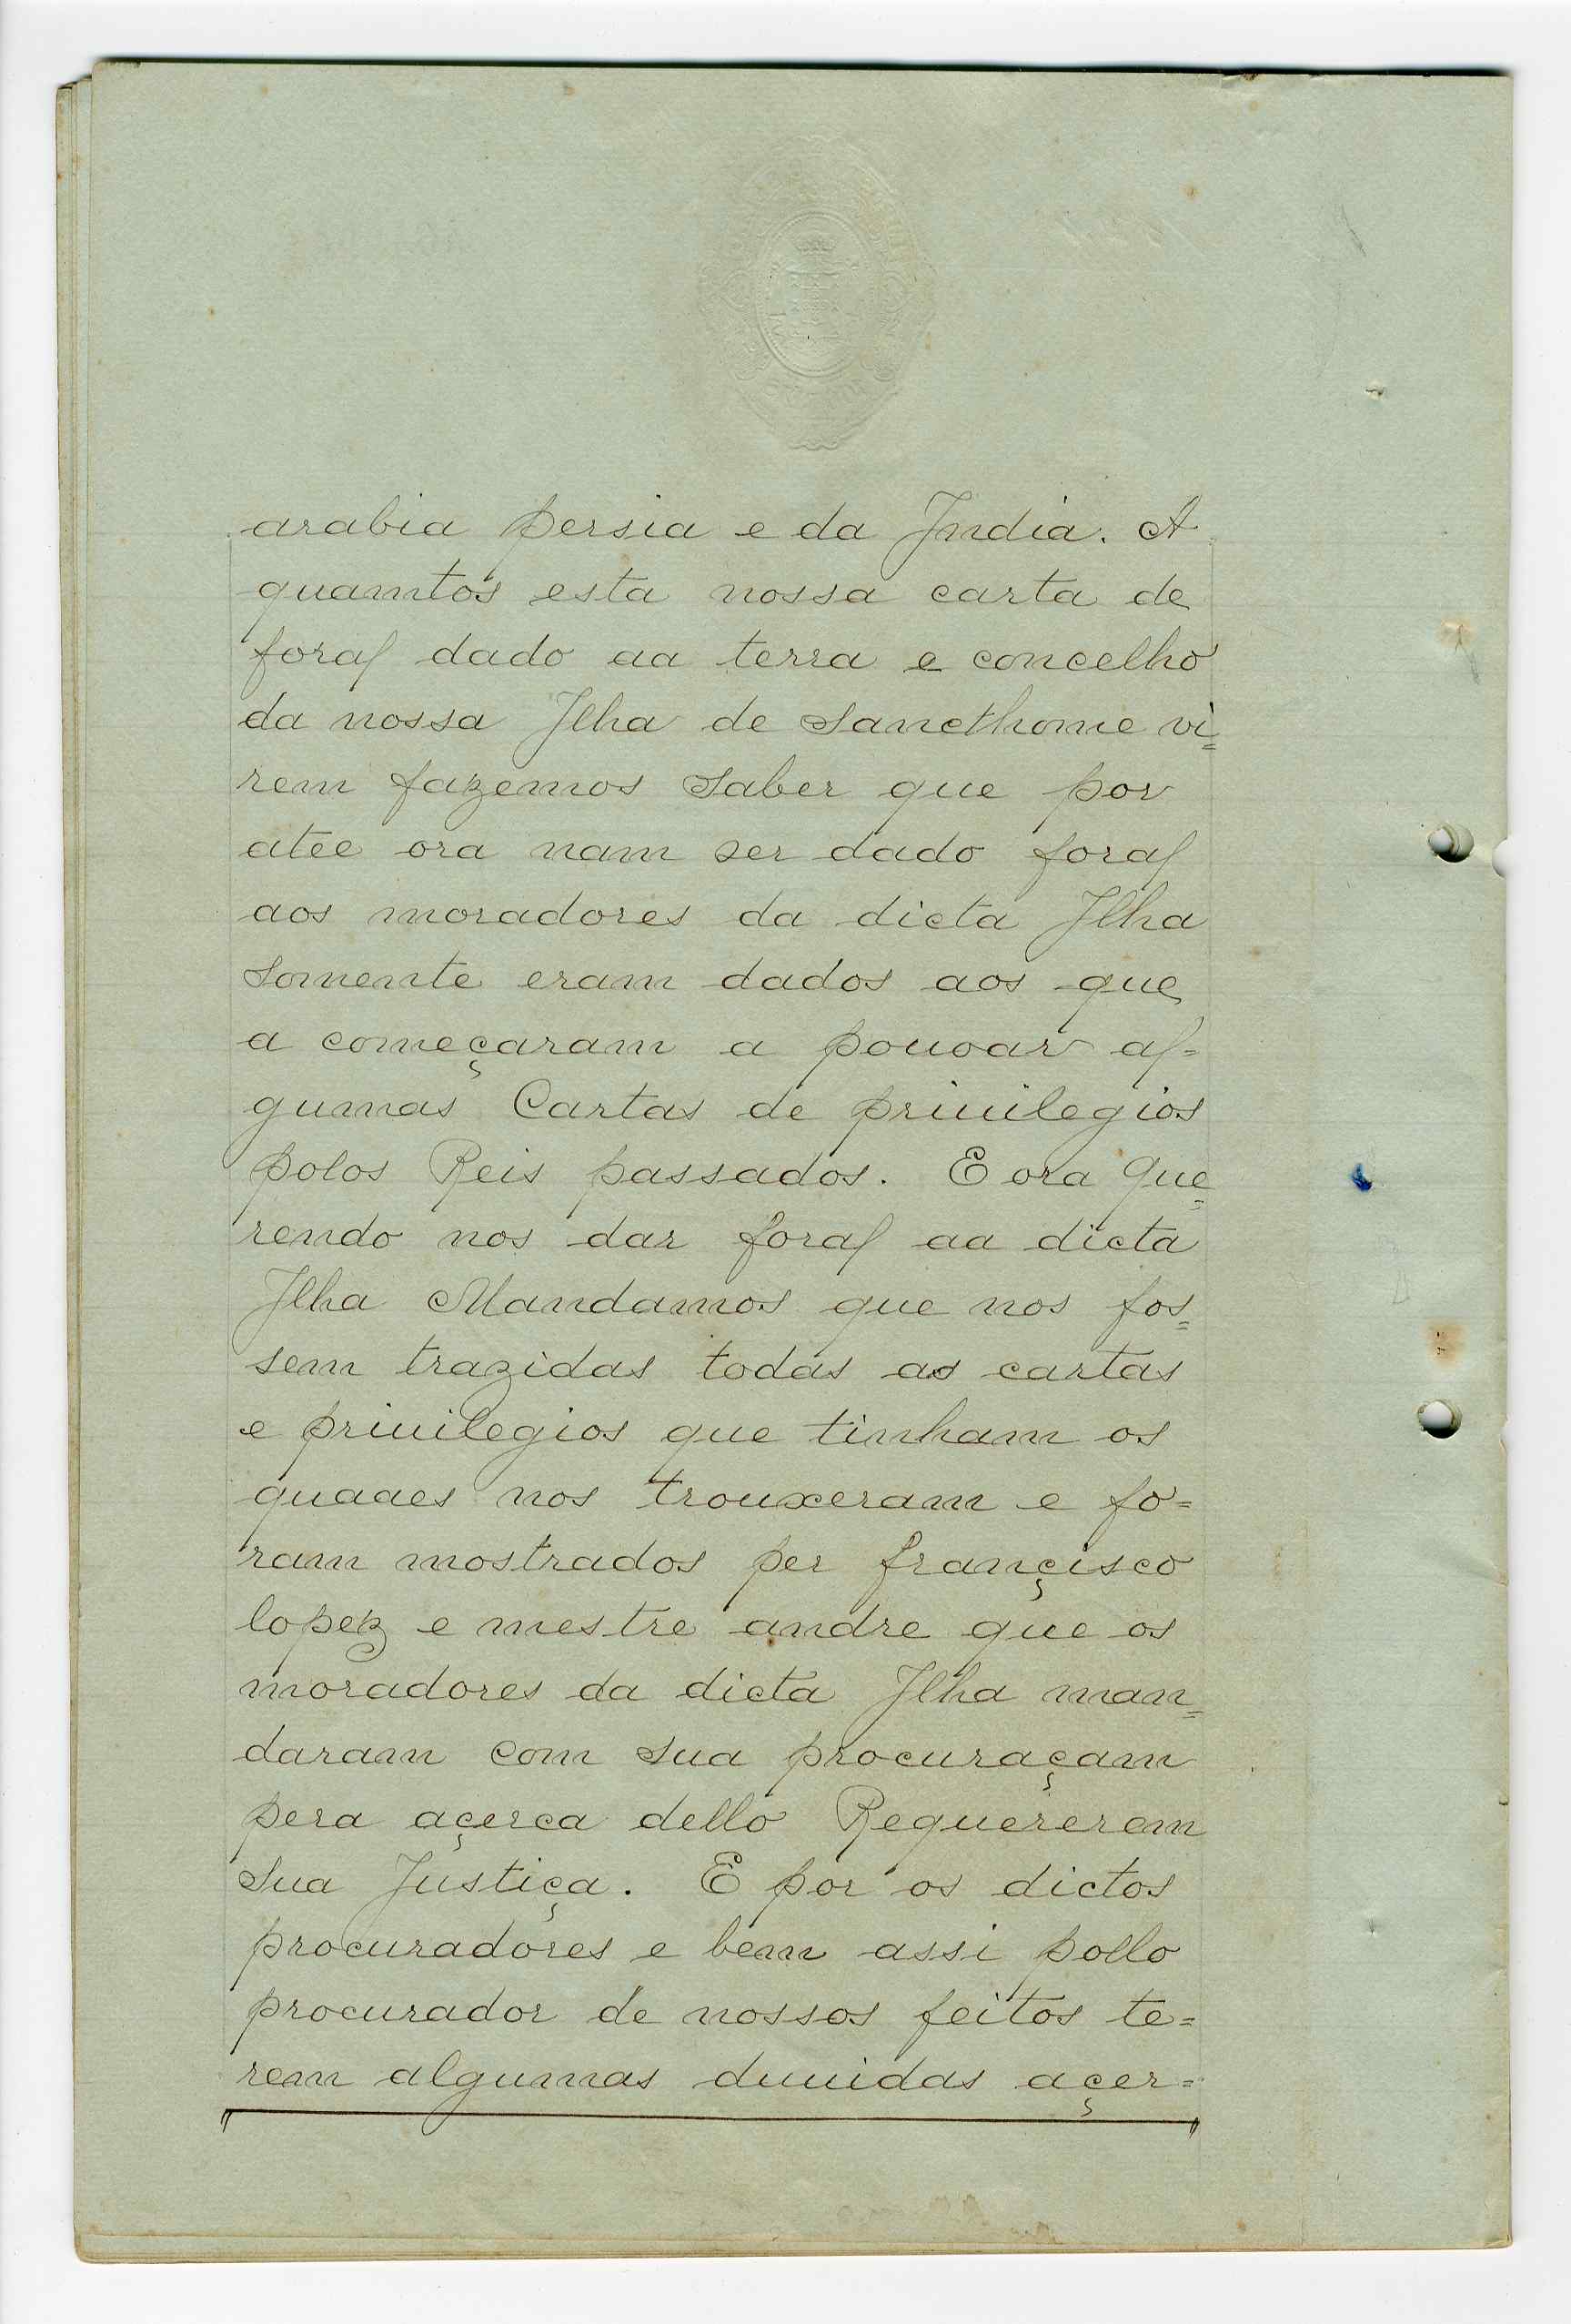 arabia persia e da Jndia. A
quamtos esta nossa carta de
foral dado aa terra e concelho
da nossa Jlha de Sancthome vi=
rem fazemos Saber que por
atee ora nam ser dado foral
aos moradores da dicta Jlha
Somente eram dados aos que
a começaram a pouoar al=
gumas Cartas de priuilegios
polos Reis passados. E ora que=
rendo nos dar foral aa dicta
Jlha Mandamos que nos fos=
sem trazidas todas as cartas
e priuilegios que tinham os
quaaes nos trouxeram e fo=
ram mostrados per françisco
lopez e mestre andre que os
moradores da dicta Jlha man=
daram com sua procuraçam
pera açerca dello Requererem
Sua Justiça. E por os dictos
procuradores e bem assi pollo
procurador de nossos feitos te=
rem algumas duuidas açer=